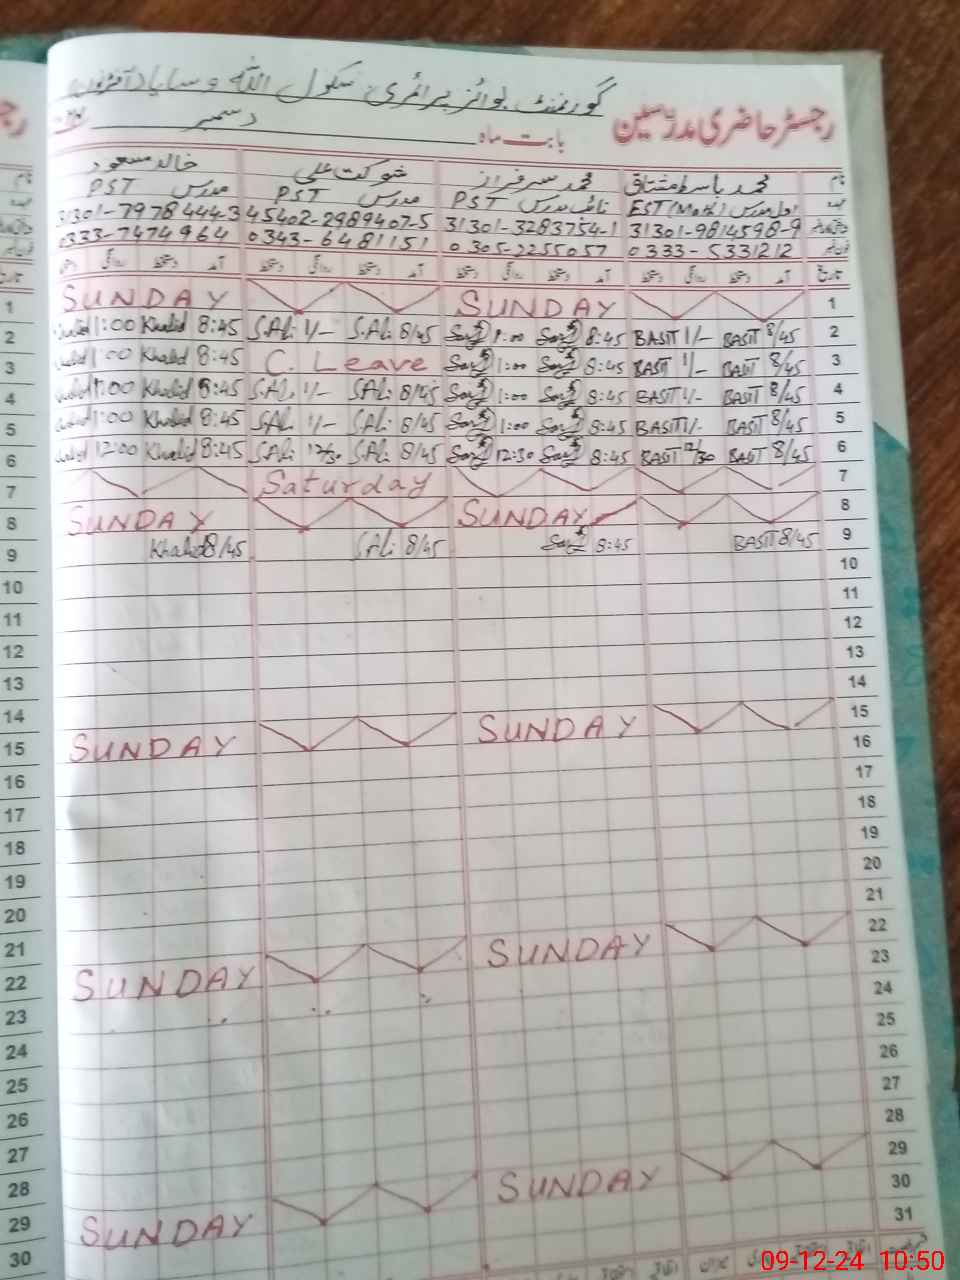 گورنمنٹ بوائز پرائمری سکول اللہ وسایا
رجسٹر حاضری مدرسین
بابت ماہ دسمبر
نام محمد باسط مشتاق محمد سرفراز شوکت علی خالد مسعود
EST (Math) اول مدرس PST نائب مدرس PST مدرس PST مدرس
31301-9814598-9 31301-3283754-1 45402-2989407-5 31301-7978444-3
0333-5331212 0305-2255057 0343-6481151 0333-7474964
تاریخ آمد دستخط روانگی دستخط آمد دستخط روانگی دستخط آمد دستخط روانگی دستخط آمد دستخط روانگی دستخط
1 SUNDAY SUNDAY 1
2 1:00 Khalid 8:45 S.Ali 1/- S.Ali 8/45 1:00 8:45 BASIT 1/- BASIT 8/45 2
3 1:00 Khalid 8:45 C. Leave 1:00 8:45 BASIT 1/- BASIT 8/45 3
4 1:00 Khalid 8:45 S.Ali 1/- S.Ali 8/45 1:00 8:45 BASIT 1/- BASIT 8/45 4
5 1:00 Khalid 8:45 S.Ali 1/- S.Ali 8/45 1:00 8:45 BASIT 1/- BASIT 8/45 5
6 12:00 Khalid 8:45 S.Ali 12/30 S.Ali 8/45 12:30 8:45 BASIT 12/30 BASIT 8/45 6
7 Saturday 7
8 SUNDAY SUNDAY 8
9 Khalid 8/45 S.Ali 8/45 8:45 BASIT 8/45 9
10 10
11 11
12 12
13 13
14 14
15 SUNDAY SUNDAY 15
16 16
17 17
18 18
19 19
20 20
21 21
22 SUNDAY SUNDAY 22
23 23
24 24
25 25
26 26
27 27
28 28
29 SUNDAY SUNDAY 29
30 30
31
09-12-24 10:50